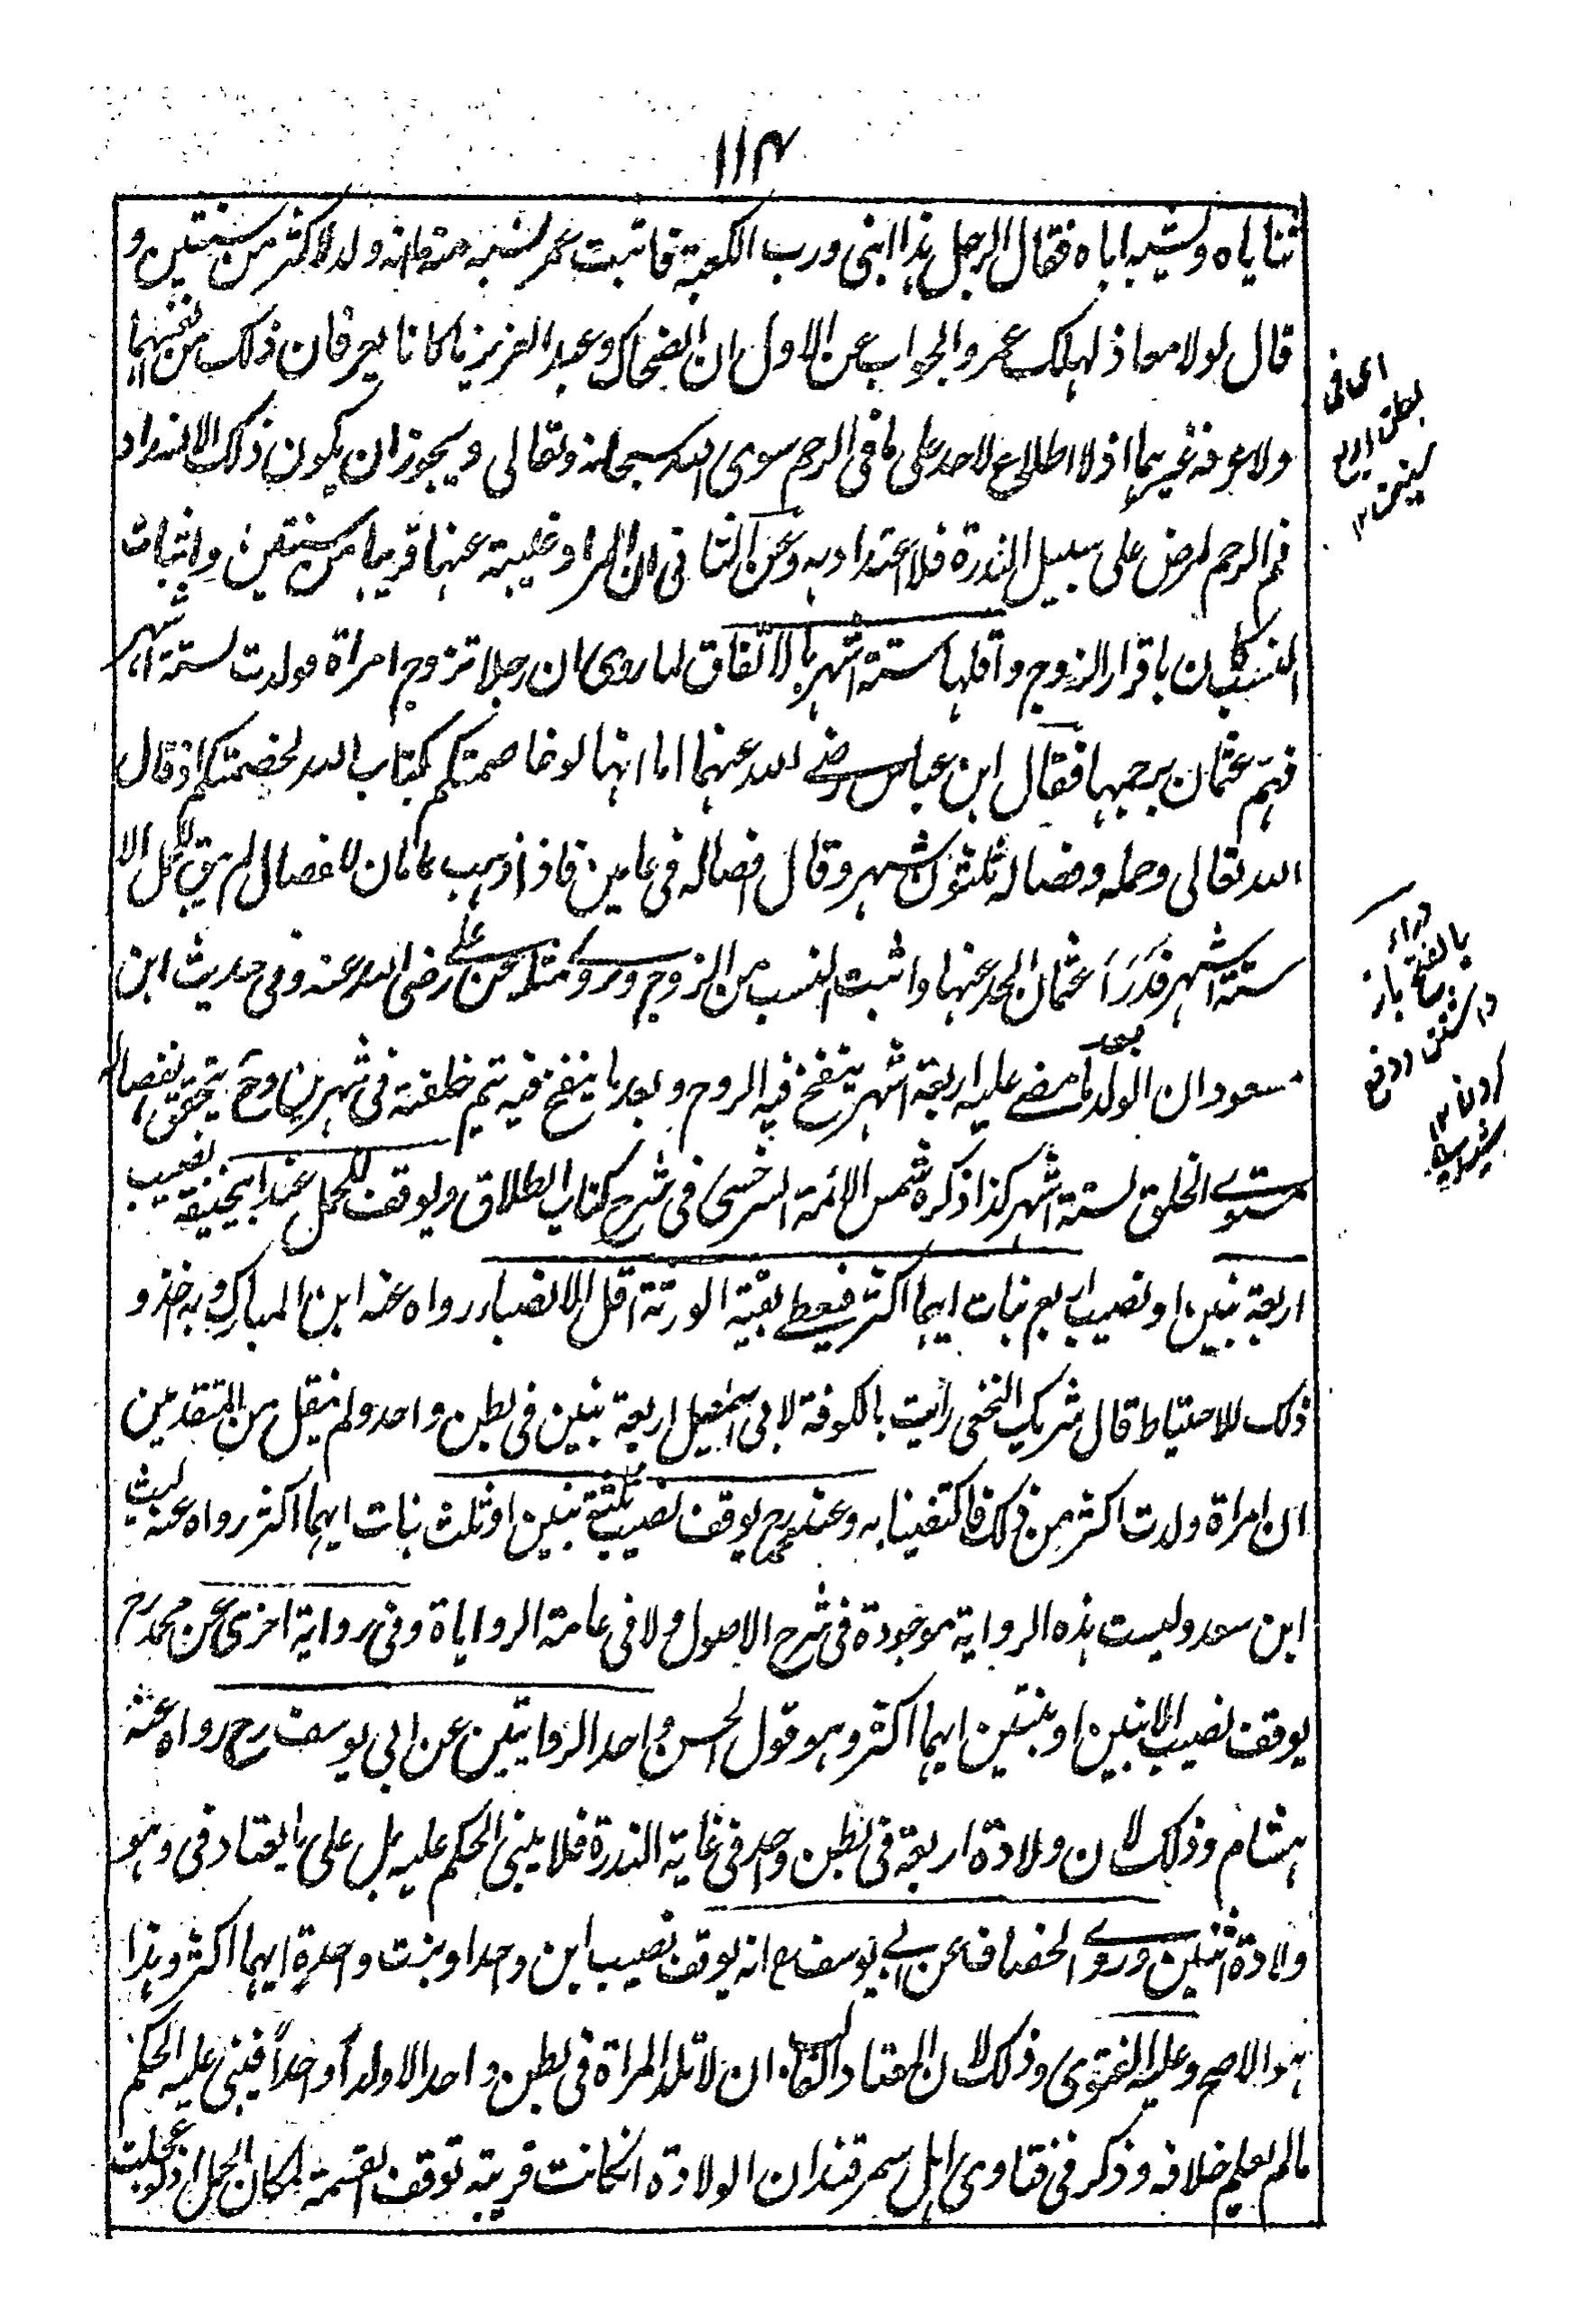 ١١٤
ثناياه ويشبه اباه فقال الرجل هذا ابنى ورب الكعبة فاثبت عمر نسبه منه مع انه ولد لاكثر من سنتين و
قال لولا معاذ لهلك عمر والجواب عن الاول ان الضحاك وعبد العزيز ما كانا يعرفان ذلك من نفسهما
ولا عرفه غيرهما اذ لا اطلاع لاحد على ما فى الرحم سوى الله سبحانه وتعالى ويجوز ان يكون ذلك الانسداد
فم الرحم لمرض على سبيل الندرة فلا اعتداد به وعن الثانى ان المراد غيبته عنها قريبا من سنتين واثبات
النسب كان باقرار الزوج واقلها ستة اشهر بالاتفاق لما روى ان رجلا تزوج امراة فولدت لستة اشهر
فهم عثمان برجمها فقال ابن عباس رضى الله عنهما اما انها لو خاصمتكم بكتاب الله لخصمتكم اذ قال
الله تعالى وحمله وفصاله ثلثون شهر وقال فصاله فى عامين فاذا ذهب عامان لافصال لم يبق للحمل الا
ستة اشهر فدرأ عثمان الحد عنها واثبت النسب من الزوج وروى مثله عن على رضى الله عنه وفى حديث ابن
مسعود ان الولد بعد ما مضى عليه اربعة اشهر ينفخ فيه الروح وبعد ما ينفخ فيه تيم خلقته فى شهرين وح يتحقق انفصاله
مستوى الخلق لستة اشهر كذا ذكره شمس الائمة السرخسى فى شرح كتاب الطلاق ويوقف للحمل عند ابيحنيفة نصيب
اربعة بنين او نصيب اربع بنات ايهما اكثر فيعطى بقية الورثة اقل الانصباء رواه عنه ابن المبارك وبه اخذ و
ذلك للاحتياط قال شريك النخعى رايت بالكوفة لابى اسمعيل اربعة بنين فى بطن واحد ولم ينقل من المتقدمين
ان امراة ولدت اكثر من ذلك فاكتفينا به وعند محمد رح يوقف نصيب ثلثة بنين او ثلث بنات ايهما اكثر رواه عنه ليث
ابن سعد وليست هذه الرواية موجودة فى شرح الاصول ولا فى عامة الروايات وفى رواية اخرى عن محمد رح
يوقف نصيب الابنين او بنتين ايهما اكثر وهو قول الحسن واحد الروايتين عن ابى يوسف رح رواه عنه
هشام وذلك لان ولادة اربعة فى بطن واحد فى غاية الندرة فلا يبنى الحكم عليه بل على ما يعتاد فى وهو
ولادة اثنين وروى الخصاف عن ابى يوسف رح انه يوقف نصيب ابن واحد او بنت واحدة ايهما اكثر وهذا
هو الاصح وعليه الفتوى وذلك لان المعتاد الغالب ان لا تلد المراة فى بطن واحد الا ولدا واحدا فيبنى عليه الحكم
مالم يعلم خلافه وذكر فى فتاوى اهل سمرقند ان الولادة انكانت قريبة توقف القسمة لمكان الحمل اذ لو عجلت
اى فى
بطن اربع
سنين ١٢
دراء
بالفتح باز
داشتن ودفع
كردن ١٢